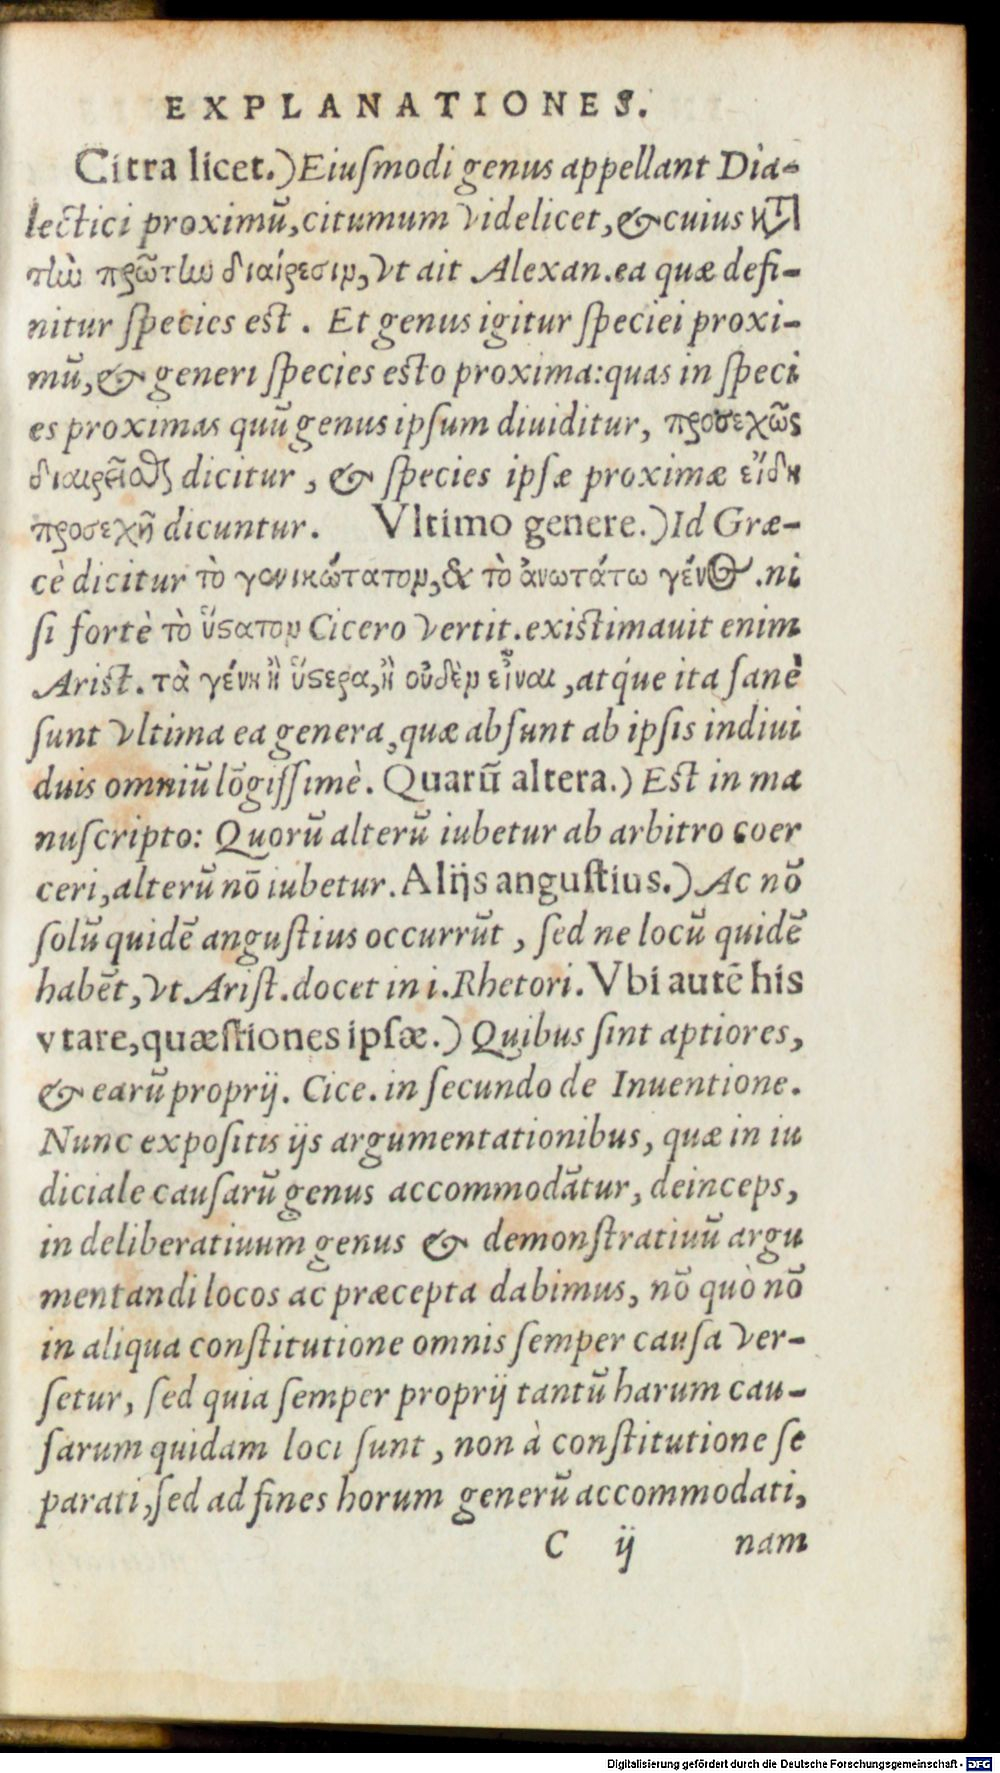 EXPLANATIONES.
Citra licet.) Eiuſmodi genus appellant Dia-
lectici proximū, citumum videlicet, & cuius κατὰ
τὴν πρώτην διαίρεσιν, vt ait Alexan. ea quæ defi-
nitur ſpecies est. Et genus igitur ſpeciei proxi-
mū, & generi ſpecies esto proxima: quas in ſpeci
es proximas quū genus ipſum diuiditur, προσεχῶς
διαιρεῖσθαι dicitur, & ſpecies ipſæ proximæ εἴδη
προσεχῆ dicuntur. Vltimo genere.) Id Græ-
cè dicitur τὸ γενικώτατον, & τὸ ἀνωτάτω γένος. ni
ſi fortè τὸ ὕστατον Cicero vertit. existimauit enim
Arist. τὰ γένη ἢ ὕστερα, ἢ οὐδὲν εἶναι, atque ita ſanè
ſunt vltima ea genera, quæ abſunt ab ipſis indiui
duis omniū lōgiſſimè. Quarū altera.) Est in ma
nuſcripto: Quorū alterū iubetur ab arbitro coer
ceri, alterū nō iubetur. Alijs anguſtius.) Ac nō
ſolū quidē anguſtius occurrūt, ſed ne locū quidē
habēt, vt Ariſt. docet in i. Rhetori. Vbi autē his
vtare, quæſtiones ipſæ.) Quibus ſint aptiores,
& earū proprij. Cice. in ſecundo de Inuentione.
Nunc expoſitis ijs argumentationibus, quæ in iu
diciale cauſarū genus accommodātur, deinceps,
in deliberatiuum genus & demonſtratiuū argu
mentandi locos ac præcepta dabimus, nō quò nō
in aliqua conſtitutione omnis ſemper cauſa ver-
ſetur, ſed quia ſemper proprij tantū harum cau-
ſarum quidam loci ſunt, non à conſtitutione ſe
parati, ſed ad fines horum generū accommodati,
C ij nam
Digitalisierung gefördert durch die Deutsche Forschungsgemeinschaft - DFG